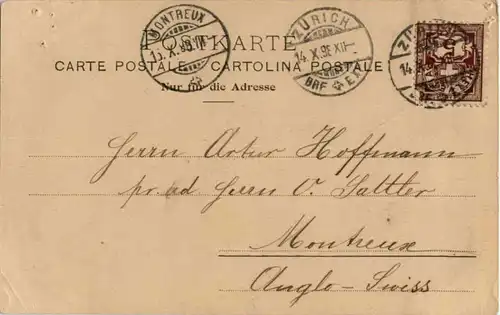 MONTREUX
ZÜRICH
POSTKARTE
14. X. 95. XII-
CARTE POSTALE - CARTOLINA POSTALE
BRF. EXP.
Nur für die Adresse
Herrn Artur Hoffmann
pr. ad Herrn O. Sattler
Montreux
Anglo-Swiss